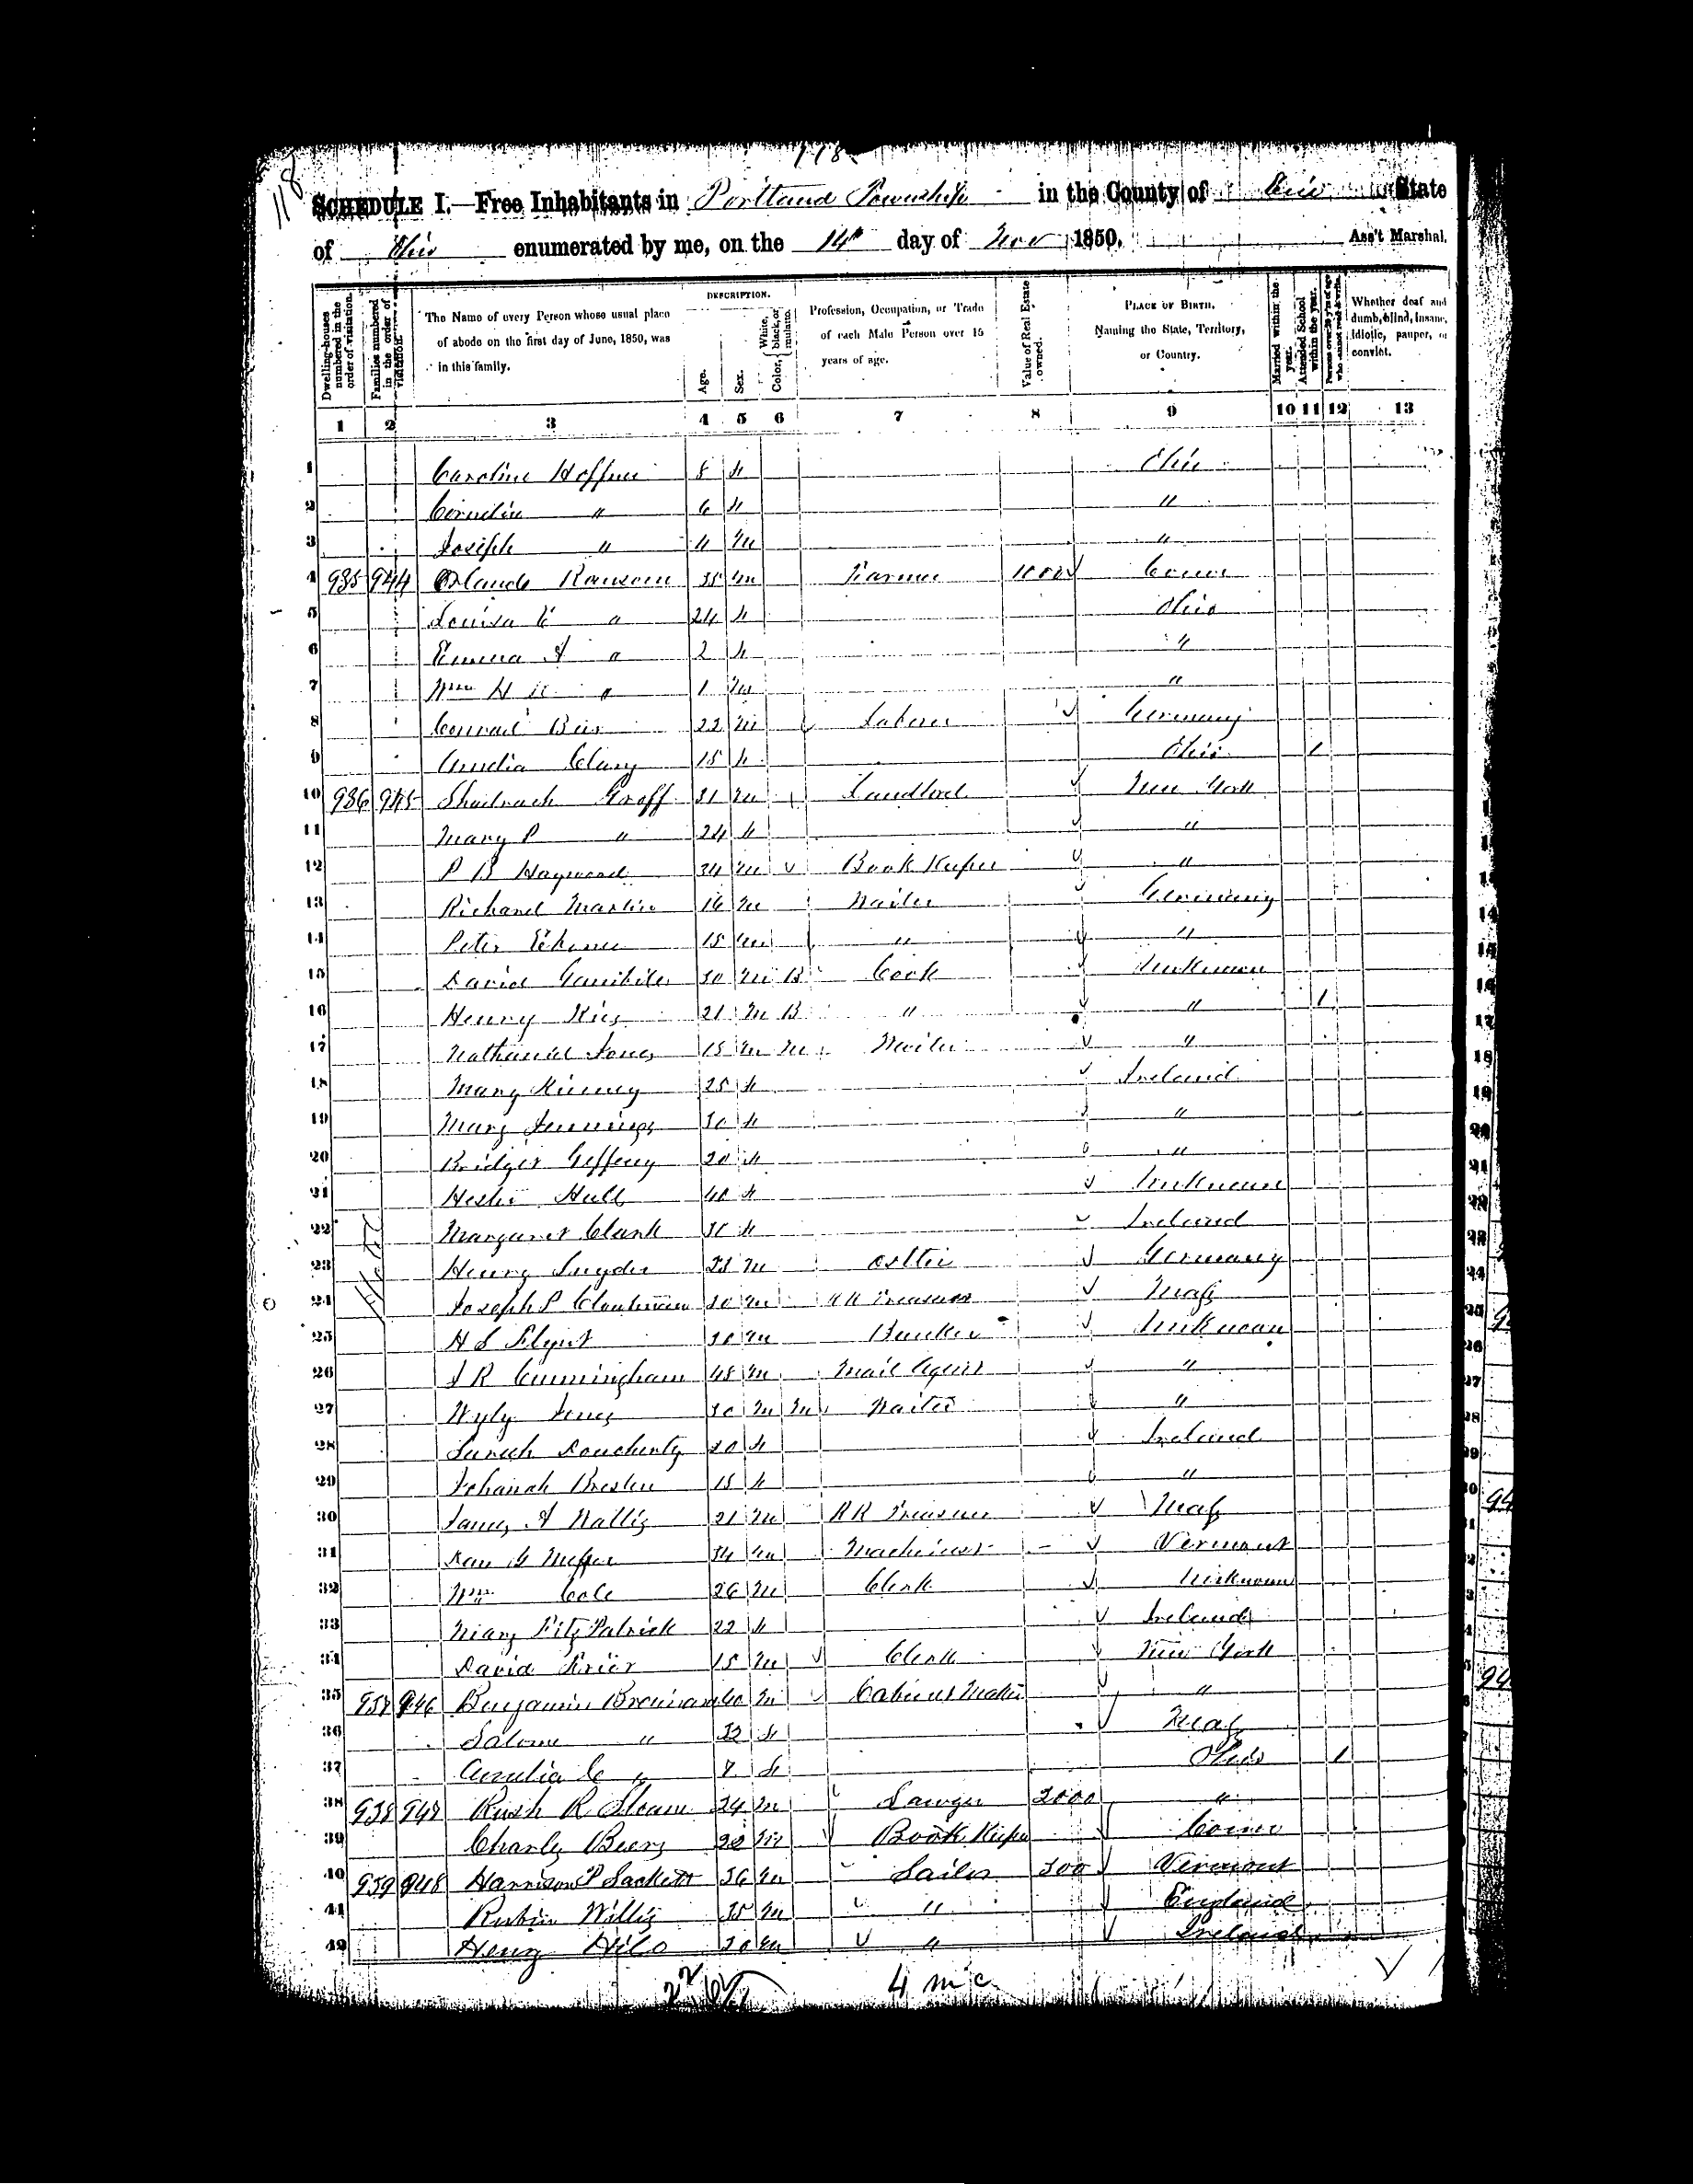 118
118
SCHEDULE I.—Free Inhabitants in Portland Township in the County of Erie State
of Ohio enumerated by me, on the 14th day of Nov 1850. Ass't Marshal.
Dwelling-houses numbered in the order of visitation.
Families numbered in the order of visitation.
The Name of every Person whose usual place of abode on the first day of June, 1850, was in this family.
DESCRIPTION.
Age.
Sex.
Color, White, black, or mulatto.
Profession, Occupation, or Trade of each Male Person over 15 years of age.
Value of Real Estate owned.
PLACE OF BIRTH. Naming the State, Territory, or Country.
Married within the year.
Attended School within the year.
Persons over 20 y'rs of age who cannot read & write.
Whether deaf and dumb, blind, insane, idiotic, pauper, or convict.
1 2 3 4 5 6 7 8 9 10 11 12 13
1 Caroline 8 f Ohio
2 Cornelia " 6 f "
3 Joseph " 4 m "
4 935 944 Orlando Ransom 35 m Farmer 1000 Conn
5 Louisa C " 24 f Ohio
6 Emma A " 2 f "
7 Wm H " 1 m "
8 Conrad 22 m Laborer Germany
9 Amelia Clary 15 f Ohio 1
10 936 945 Shadrach Groff 31 m Landlord New York
11 Mary P " 24 f "
12 P B Haywood 34 m Book Keeper "
13 Richard Martin 16 m Waiter Germany
14 Peter 15 m " "
15 David 30 m B Cook Unknown
16 Henry 21 m B " " 1
17 Nathaniel Jones 15 m m Waiter "
18 Mary Kinney 25 f Ireland
19 Mary Jennings 30 f "
20 Bridget Geffeny 20 f "
21 Hester Hull 40 f Unknown
22 Margaret Clark 30 f Ireland
23 Henry Snyder 23 m Ostler Germany
24 Joseph P 30 m RR Treasurer Mass
25 H S Flynt 30 m Banker Unknown
26 J R Cunningham 48 m Mail Agent "
27 Wyly Jones 30 m m Waiter "
28 Sarah Doucherty 20 f Ireland
29 Johanah Breslen 18 f "
30 James A Wallis 21 m RR Treasurer Mass
31 Dan G 34 m Machinist Vermont
32 Wm Cole 26 m Clerk Unknown
33 Mary FitzPatrick 22 f Ireland
34 David 15 m Clerk New York
35 937 946 Benjamin 40 m Cabinet Maker "
36 Salome " 32 f Mass
37 Amelia C " 7 f Ohio 1
38 938 947 Rush R Sloane 24 m Lawyer 2000 "
39 Charles Beers 22 m Book Keeper Conn
40 939 948 Harrison P Sackett 36 m Sailor 300 Vermont
41 Rubin Willis 35 m " England
42 Henry 20 m " Ireland
4 m c